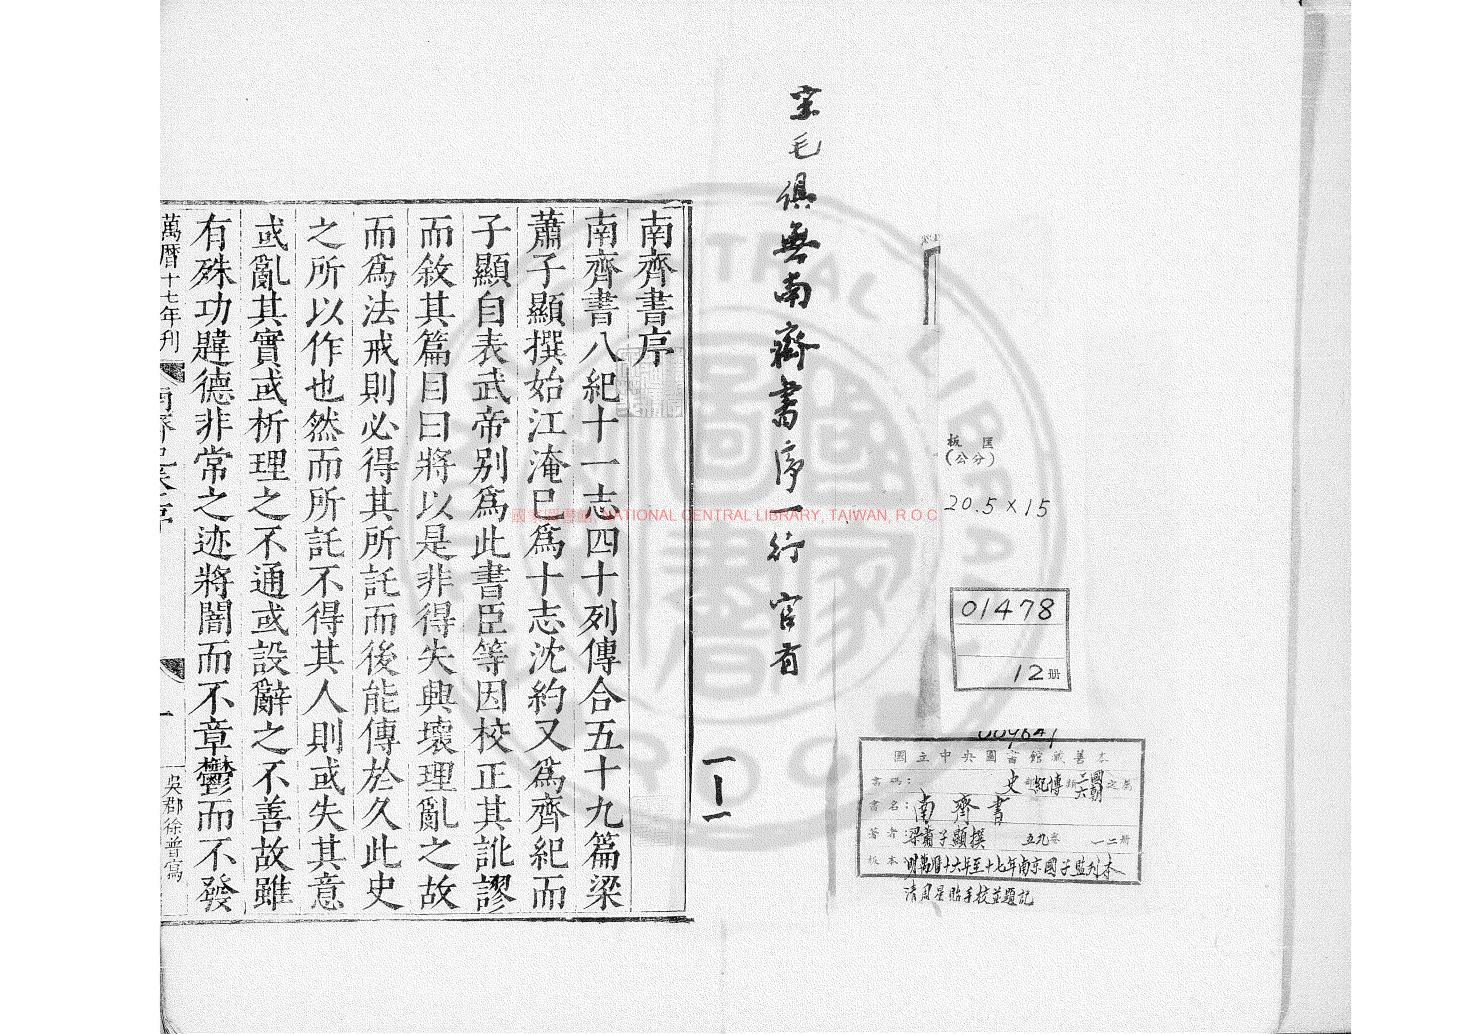 宋毛俱無南齊書序一行 官有
板匡
(公分)
20.5×15
01478
12册
國立中央圖書館藏善本
書碼：史部紀傳類三國六朝之屬
書名：南齊書
著者：梁蕭子顯撰 五九卷 一二冊
板本：明萬曆十六年至十七年南京國子監刊本
清周星貽手校並題記
1-1
南齊書序
南齊書八紀十一志四十列傳合五十九篇梁
蕭子顯撰始江淹已爲十志沈約又爲齊紀而
子顯自表武帝别爲此書臣等因校正其訛謬
而敘其篇目曰將以是非得失興壞理亂之故
而爲法戒則必得其所託而後能傳於久此史
之所以作也然而所託不得其人則或失其意
或亂其實或析理之不通或設辭之不善故雖
有殊功韙德非常之迹將闇而不章鬱而不發
萬曆十七年刊
一
吳郡徐普寫
國家圖書館, NATIONAL CENTRAL LIBRARY, TAIWAN, R.O.C.